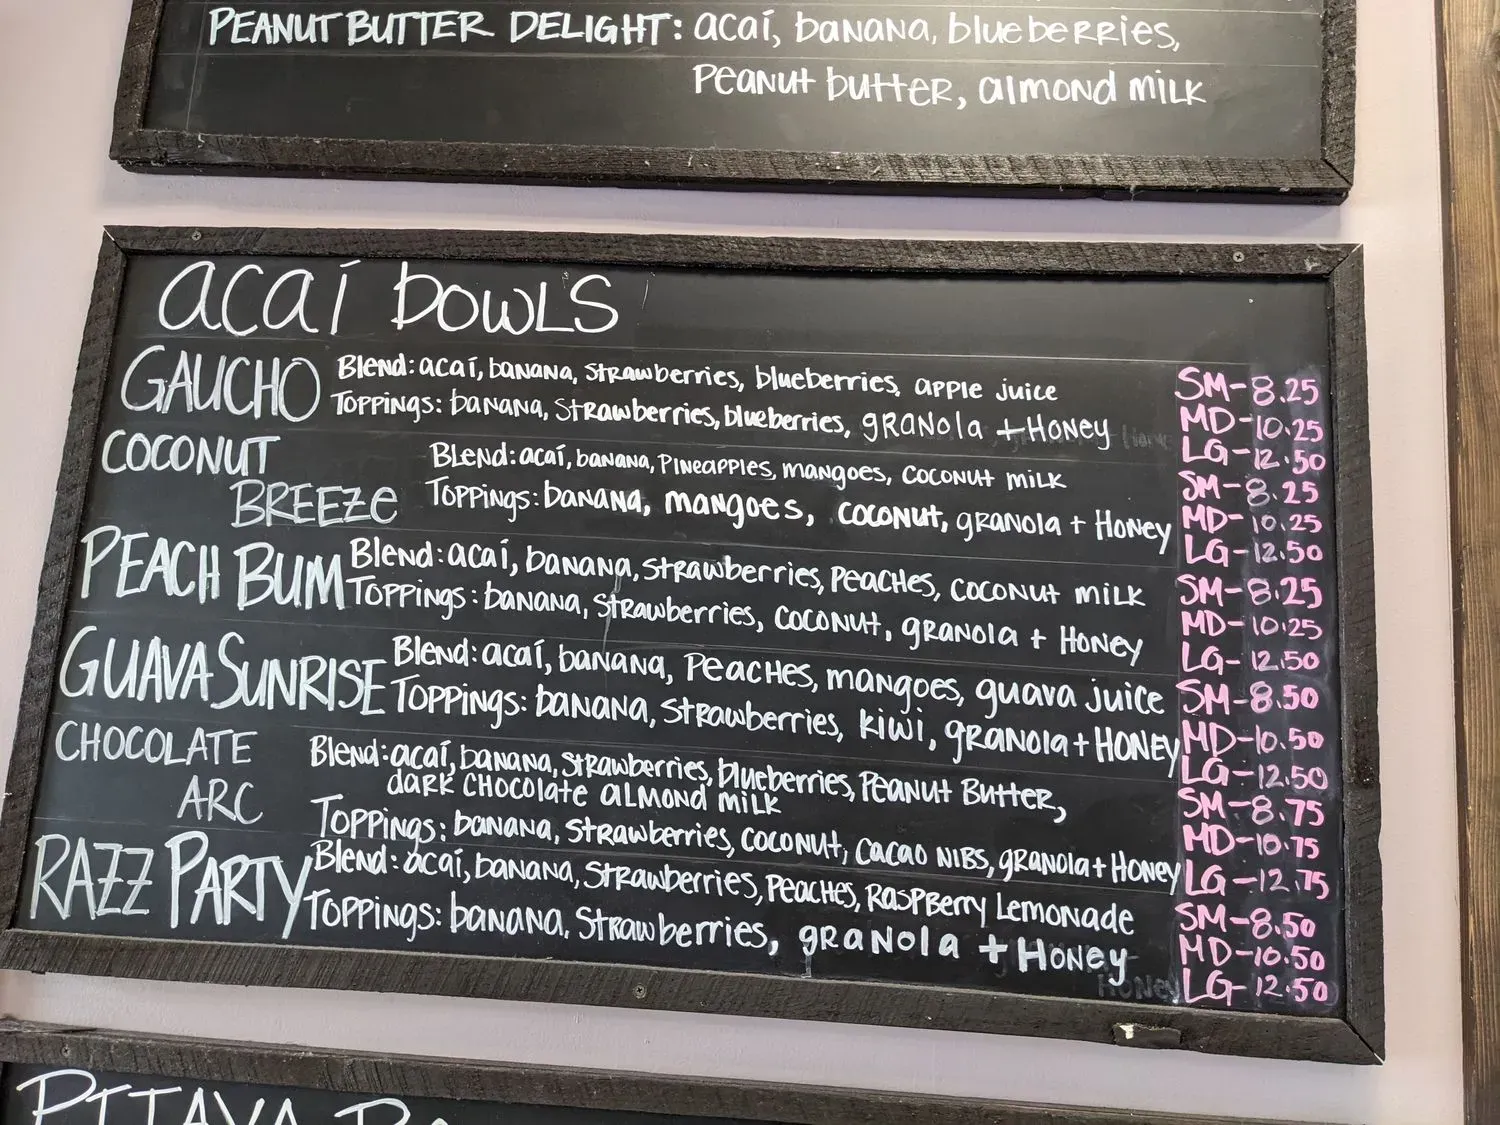 PEANUT BUTTER DELIGHT: acaí, banana, blueberries,
Peanut butter, almond milk
acaí bowls
GAUCHO
Blend: acaí, banana, strawberries, blueberries, apple juice
Toppings: banana, strawberries, blueberries, granola + Honey
SM-8.25
MD-10.25
LG-12.50
COCONUT BREEZE
Blend: acaí, banana, pineapples, mangoes, coconut milk
Toppings: banana, mangoes, coconut, granola + Honey
SM-8.25
MD-10.25
LG-12.50
PEACH BUM
Blend: acaí, banana, strawberries, peaches, coconut milk
Toppings: banana, strawberries, coconut, granola + Honey
SM-8.25
MD-10.25
LG-12.50
GUAVA SUNRISE
Blend: acaí, banana, peaches, mangoes, guava juice
Toppings: banana, strawberries, kiwi, granola + HONEY
SM-8.50
MD-10.50
LG-12.50
CHOCOLATE ARC
Blend: acaí, banana, strawberries, blueberries, Peanut Butter,
dark chocolate almond milk
Toppings: banana, strawberries, coconut, cacao nibs, granola + Honey
SM-8.75
MD-10.75
LG-12.75
RAZZ PARTY
Blend: acaí, banana, strawberries, peaches, Raspberry Lemonade
Toppings: banana, strawberries, granola + Honey
SM-8.50
MD-10.50
LG-12.50
PITAYA